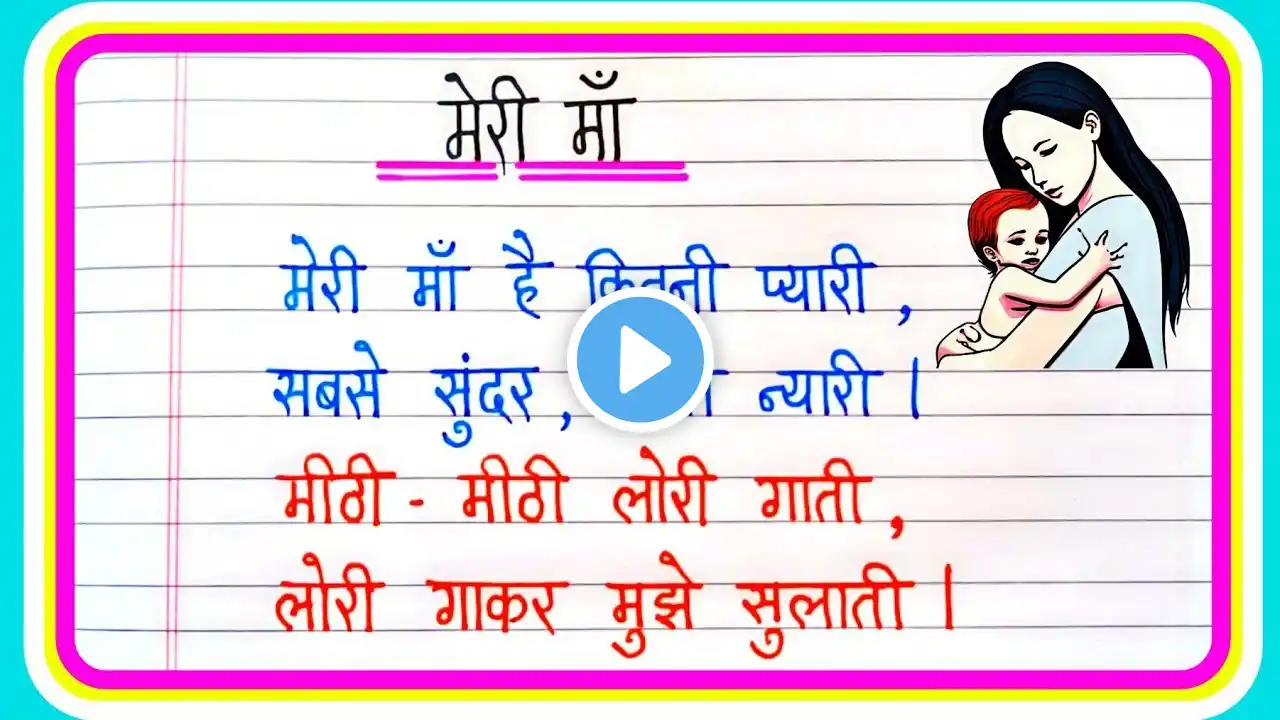 मेरी माँ
मेरी माँ है कितनी प्यारी,
सबसे सुंदर, न्यारी।
मीठी - मीठी लोरी गाती,
लोरी गाकर मुझे सुलाती।